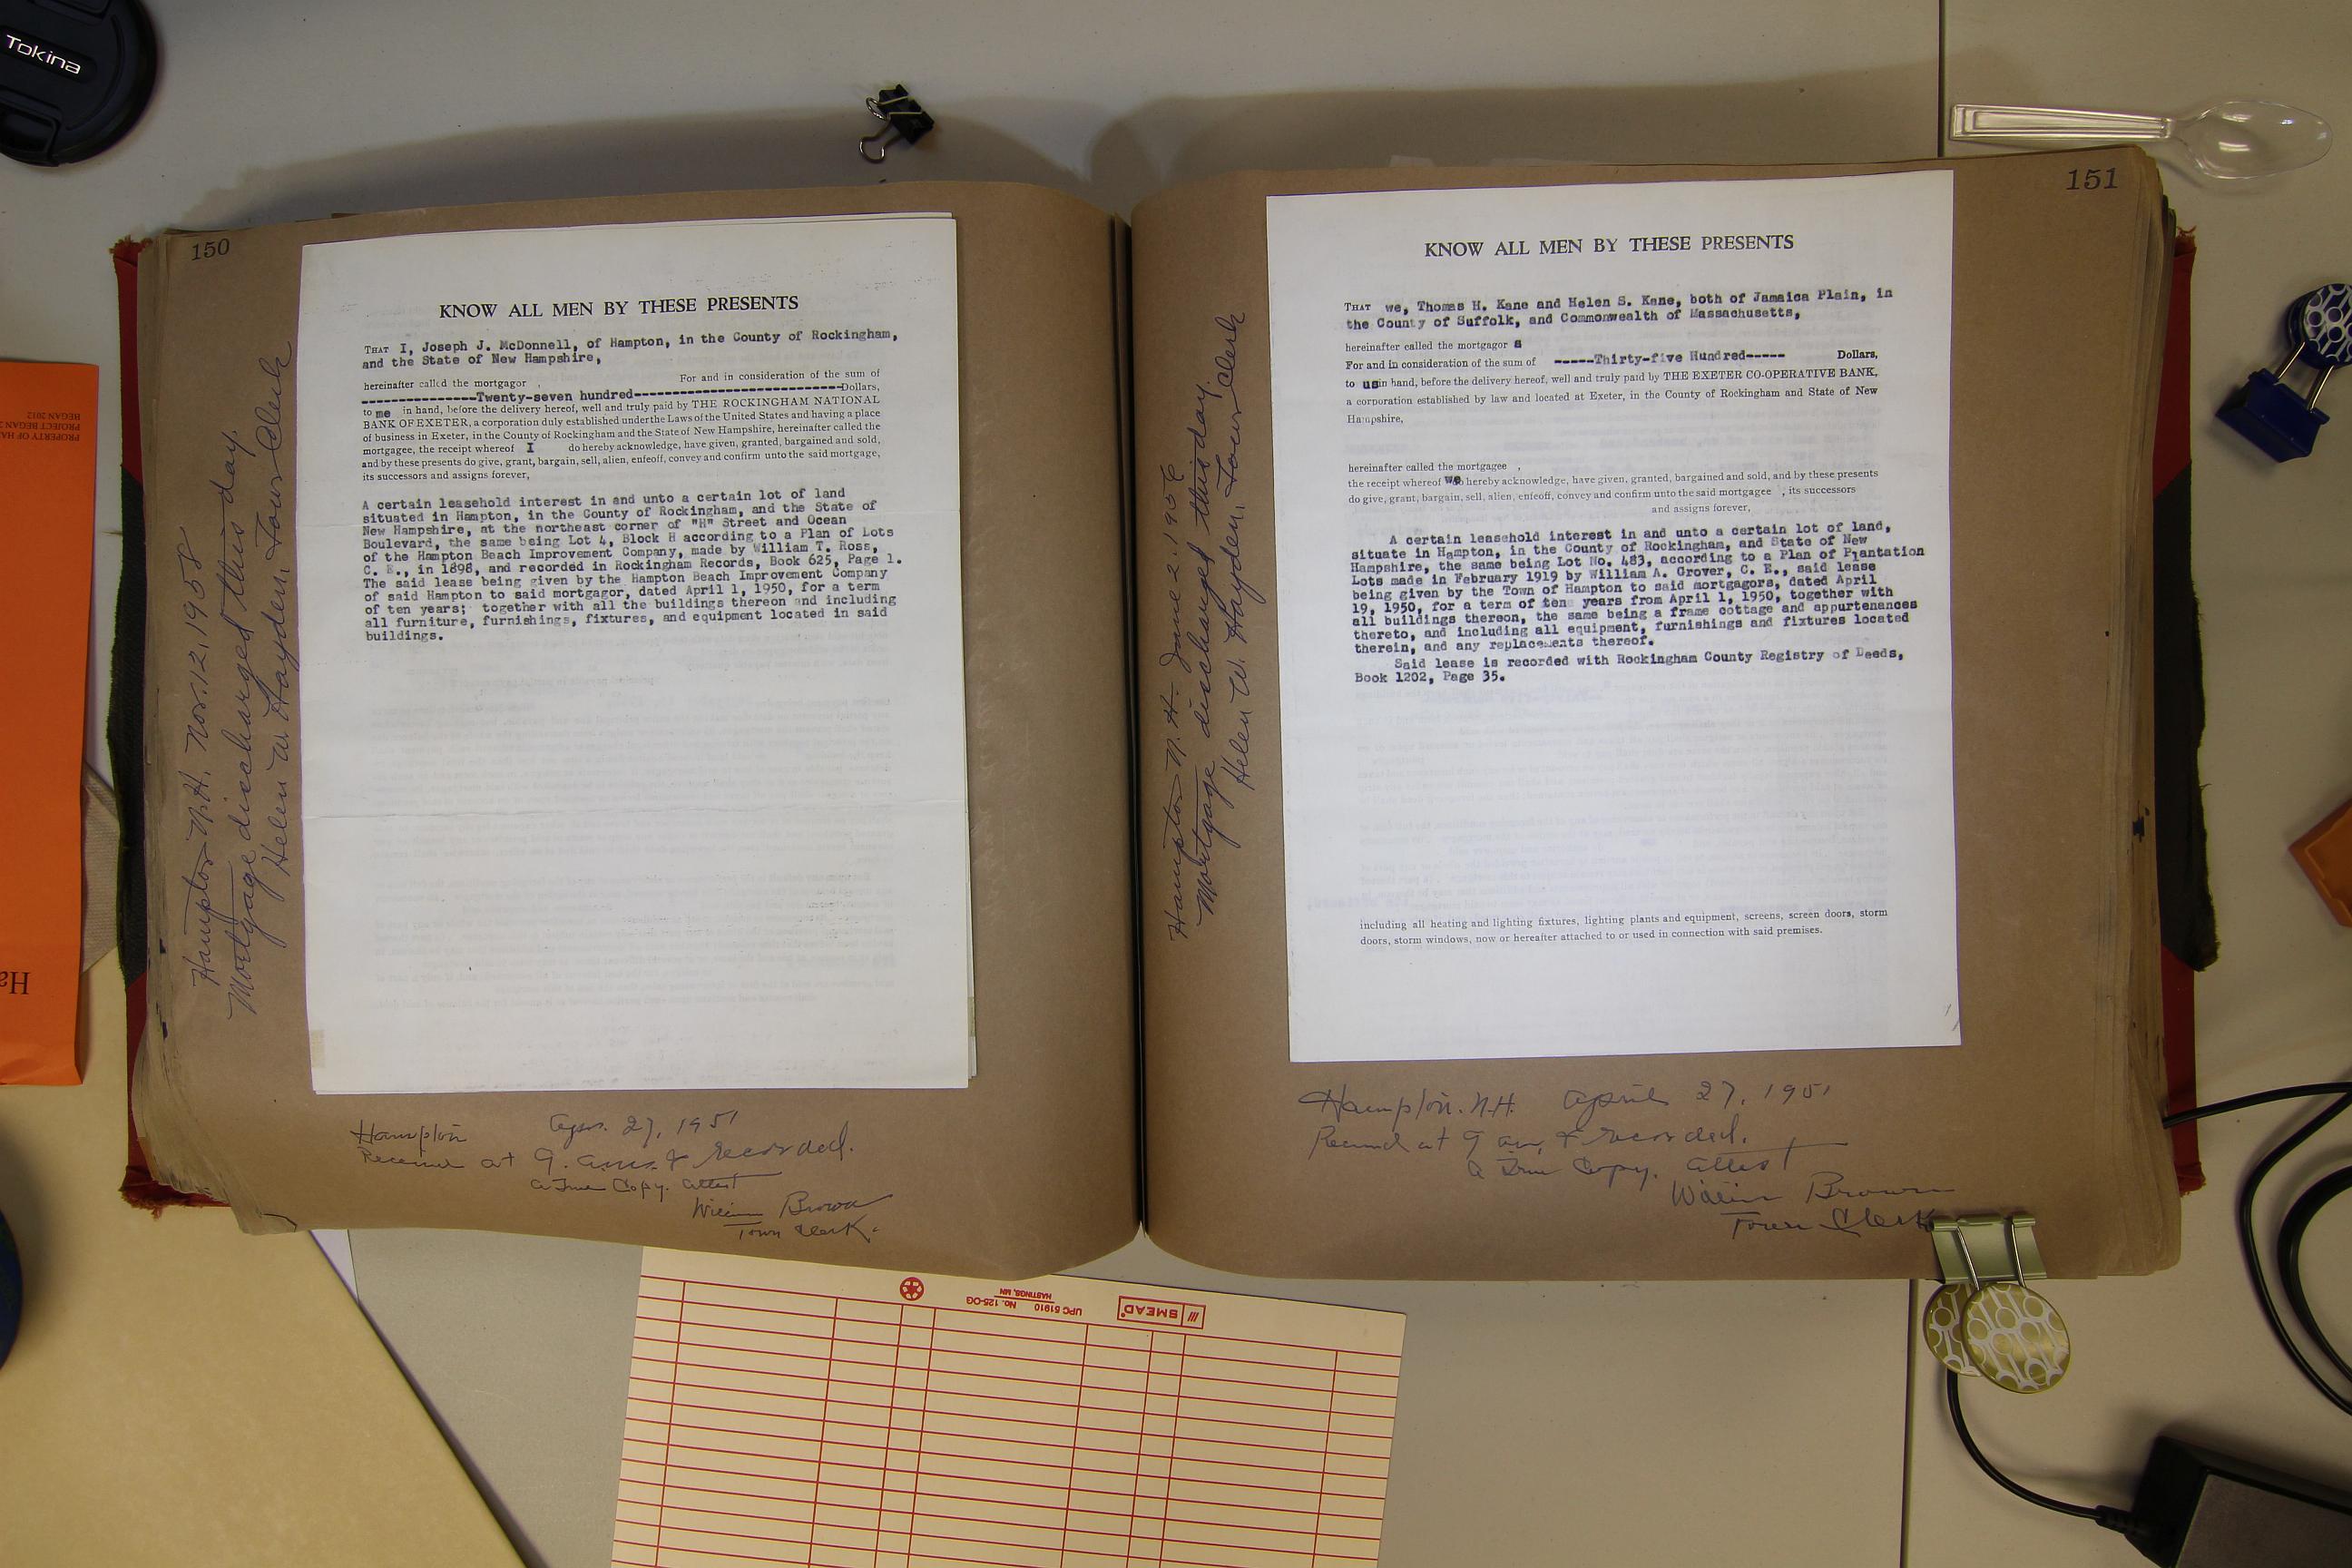 Tokina
150
KNOW ALL MEN BY THESE PRESENTS
THAT I, Joseph J. McDonnell, of Hampton, in the County of Rockingham,
and the State of New Hampshire,
hereinafter called the mortgagor , For and in consideration of the sum of
----------------Twenty-seven hundred-----------------------------Dollars,
to me in hand, before the delivery hereof, well and truly paid by THE ROCKINGHAM NATIONAL
BANK OF EXETER, a corporation duly established under the Laws of the United States and having a place
of business in Exeter, in the County of Rockingham and the State of New Hampshire, hereinafter called the
mortgagee, the receipt whereof I do hereby acknowledge, have given, granted, bargained and sold,
and by these presents do give, grant, bargain, sell, alien, enfeoff, convey and confirm unto the said mortgage,
its successors and assigns forever,
A certain leasehold interest in and unto a certain lot of land
situated in Hampton, in the County of Rockingham, and the State of
New Hampshire, at the northeast corner of "H" Street and Ocean
Boulevard, the same being Lot 4, Block H according to a Plan of Lots
of the Hampton Beach Improvement Company, made by William T. Ross,
C. E., in 1898, and recorded in Rockingham Records, Book 625, Page 1.
The said lease being given by the Hampton Beach Improvement Company
of said Hampton to said mortgagor, dated April 1, 1950, for a term
of ten years; together with all the buildings thereon and including
all furniture, furnishings, fixtures, and equipment located in said
buildings.
Hampton N.H. Nov. 12, 1958
Mortgage discharged this day.
Helen W. Hayden, Town Clerk
Hampton Apr. 27, 1951
Received at 9. a.m. & recorded.
a True Copy. attest
William Brown
Town Clerk.
151
KNOW ALL MEN BY THESE PRESENTS
THAT we, Thomas H. Kane and Helen S. Kane, both of Jamaica Plain, in
the County of Suffolk, and Commonwealth of Massachusetts,
hereinafter called the mortgagor s
For and in consideration of the sum of -----Thirty-five Hundred----- Dollars,
to us in hand, before the delivery hereof, well and truly paid by THE EXETER CO-OPERATIVE BANK,
a corporation established by law and located at Exeter, in the County of Rockingham and State of New
Hampshire,
hereinafter called the mortgagee ,
the receipt whereof we hereby acknowledge, have given, granted, bargained and sold, and by these presents
do give, grant, bargain, sell, alien, enfeoff, convey and confirm unto the said mortgagee , its successors
and assigns forever,
A certain leasehold interest in and unto a certain lot of land,
situate in Hampton, in the County of Rockingham, and State of New
Hampshire, the same being Lot No. 483, according to a Plan of Plantation
Lots made in February 1919 by William A. Grover, C. E., said lease
being given by the Town of Hampton to said mortgagors, dated April
19, 1950, for a term of ten years from April 1, 1950, together with
all buildings thereon, the same being a frame cottage and appurtenances
thereto, and including all equipment, furnishings and fixtures located
therein, and any replacements thereof.
Said lease is recorded with Rockingham County Registry of Deeds,
Book 1202, Page 35.
including all heating and lighting fixtures, lighting plants and equipment, screens, screen doors, storm
doors, storm windows, now or hereafter attached to or used in connection with said premises.
Hampton N.H. June 2, 195
Mortgage discharged this day.
Helen W. Hayden, Town Clerk
Hampton. N.H. April 27, 1951
Received at 9 am, & recorded.
a True Copy. attest
William Brown
Town Clerk
SMEAD
UPC 51910 No. 125-OG
HASTINGS, MN
PROPERTY OF HA
PROJECT BEGAN 2
BEGAN 2012
Ha